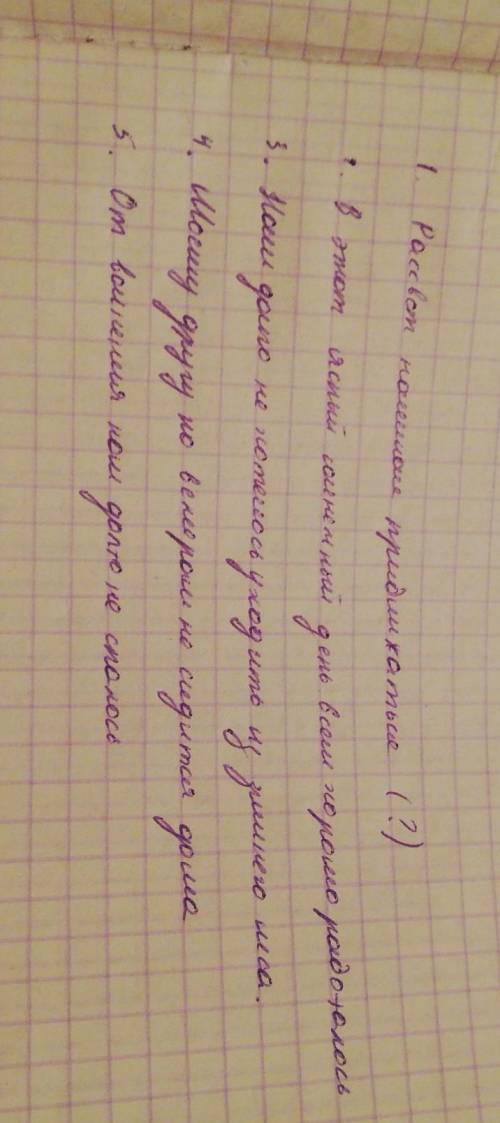 1. Рассвет начинает придлихаться (?)
2. В этот ясный солнечный день всем хорошо работалось
3. Нам долго не хотелось уходить из зимнего леса.
4. Моему другу по вечерам не сидится дома
5. От волнения нам долго не спалось